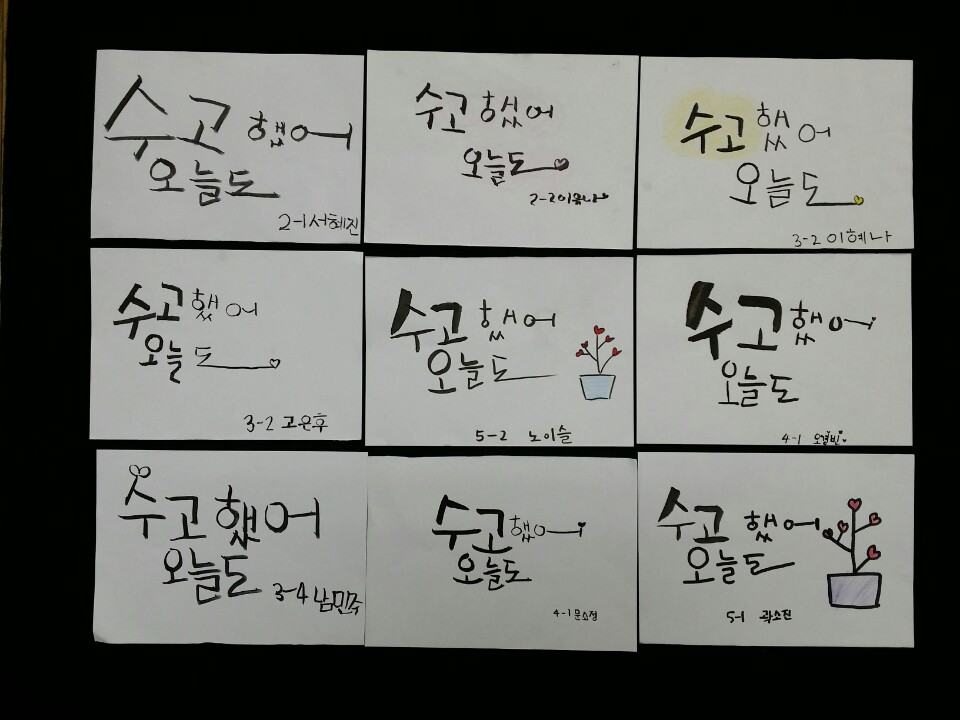 수고 했어
오늘도
2-1 서혜진
수고 했어
오늘도
2-2 이
수고 했어
오늘도
3-2 이혜나
수고 했어
오늘도
3-2 고은후
수고 했어
오늘도
5-2 노이슬
수고 했어
오늘도
4-1 오경빈
수고 했어
오늘도
3-4 남민주
수고 했어
오늘도
4-1 문소정
수고 했어
오늘도
5-1 곽소진